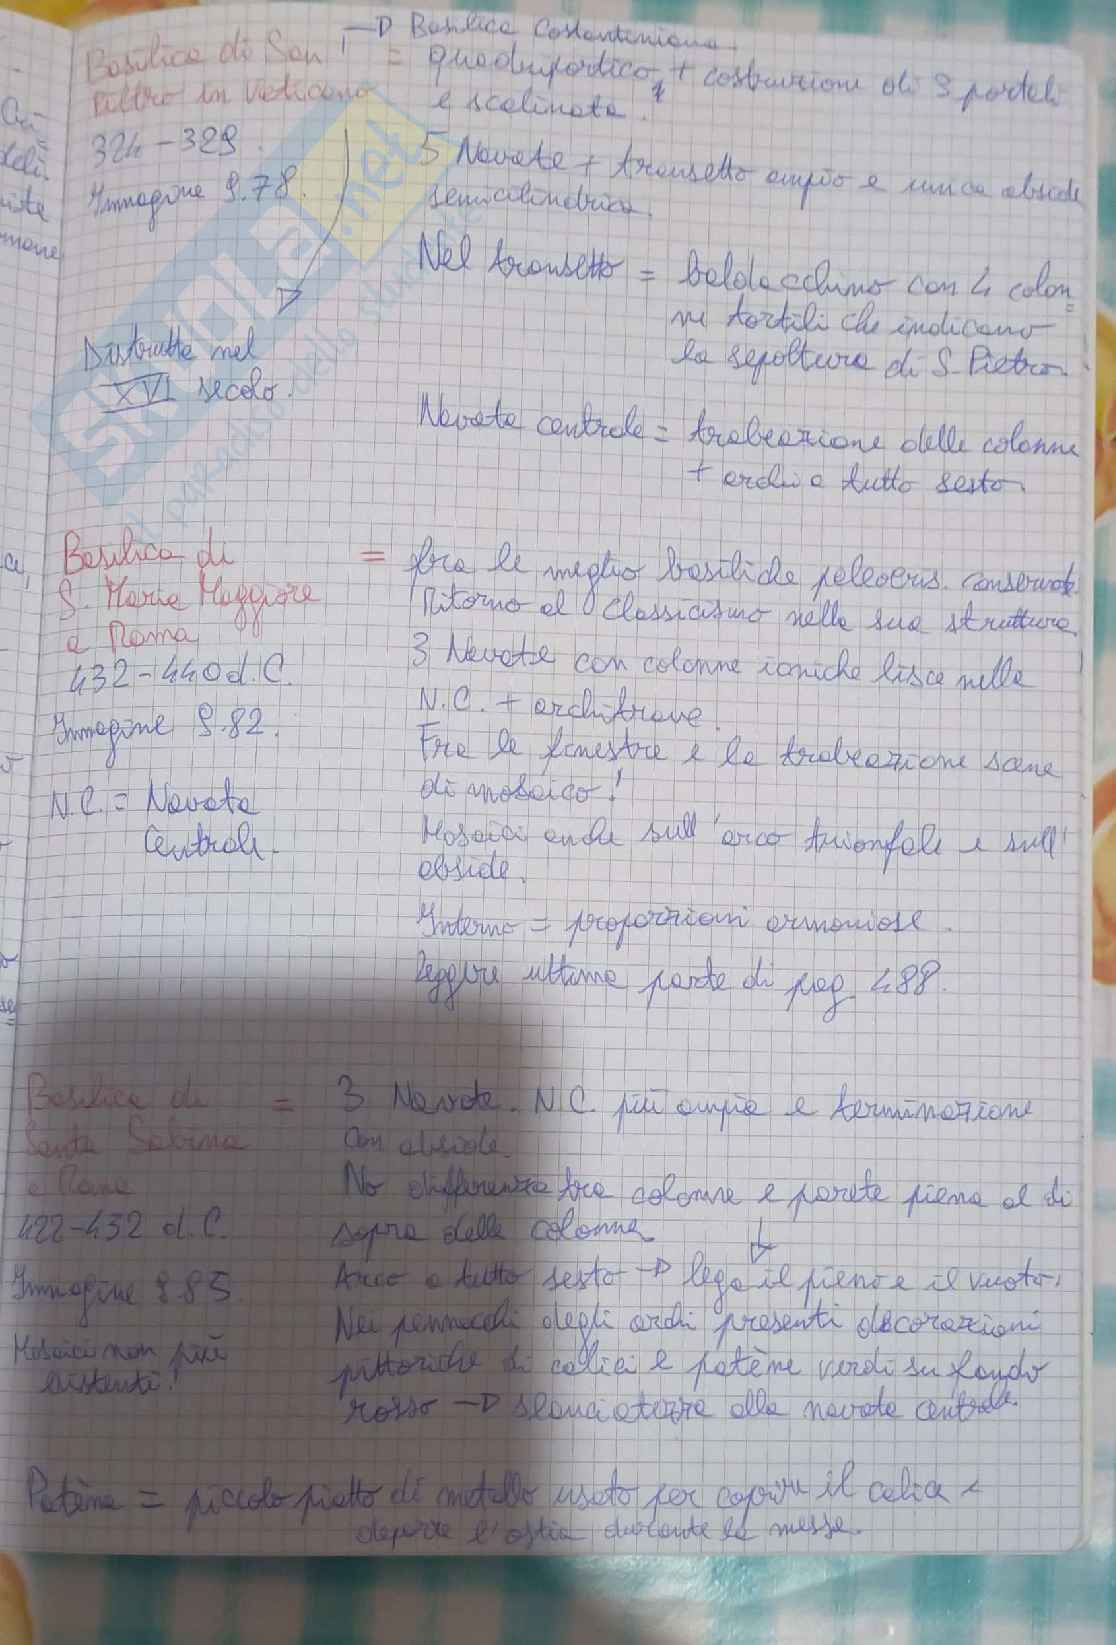 → Basilica Costantiniana.
Basilica di San = quadriportico, + costruzione di 3 portali
Pietro in Vaticano e scalinata.
324-329.
5 Navate + transetto ampio e unica abside
Immagine 9.78. semicilindrica.
Nel transetto = baldacchino con 4 colon=
ne tortili che indicano
la sepoltura di S. Pietro.
Distrutta nel
XVI secolo.
Navata centrale = trabeazione delle colonne
+ archi a tutto sesto.
Basilica di = fra le meglio basiliche paleocris. conservate.
S. Maria Maggiore Ritorno al classicismo nella sua struttura
a Roma 3 Navate con colonne ioniche lisce nella
432-440 d.C. N.C. + architrave.
Immagine 9.82. Fra le finestre e la trabeazione scene
di mosaico!
N.C. = Navata
Centrale. Mosaici anche sull'arco trionfale e sull'
abside.
Interno = proporzioni armoniose.
Leggere ultima parte di pag 488.
Basilica di = 3 Navate. N.C. più ampia e terminazione
Santa Sabina con abside.
a Roma No differenza tra colonne e parete piena al di
422-432 d.C. sopra delle colonne
Immagine 9.85 Arco a tutto sesto → lega il pieno e il vuoto.
Mosaici non più Nei pennacchi degli archi presenti decorazioni
esistenti! pittoriche di calici e patène verdi su fondo
rosso → slanciatezza alla navata centrale.
Patèna = piccolo piatto di metallo usato per coprire il calice e
deporre l'ostia durante la messa.
SKUOLA.net
il paradiso dello studente